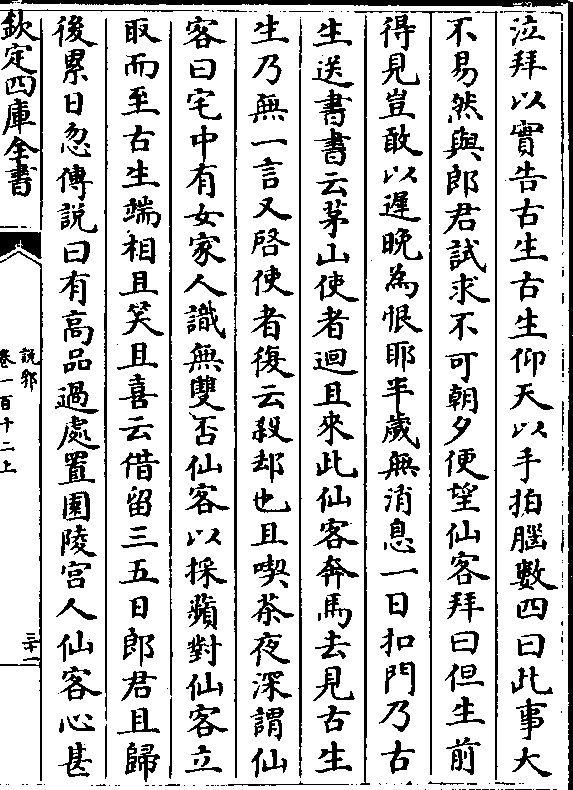 泣拜以實告古生古生仰天以手拍腦數四曰此事大
不易然與郎君試求不可朝夕便望仙客拜曰但生前
得見豈敢以遲晚為恨耶半歲無消息一日扣門乃古
生送書書云茅山使者迴且來此仙客奔馬去見古生
生乃無一言又啓使者復云殺却也且喫茶夜深謂仙
客曰宅中有女家人識無雙否仙客以採蘋對仙客立
取而至古生端相且笑且喜云借留三五日郎君且歸
後累日忽傳說曰有高品過處置園陵宫人仙客心甚
欽定四庫全書
說郛
卷一百十二上